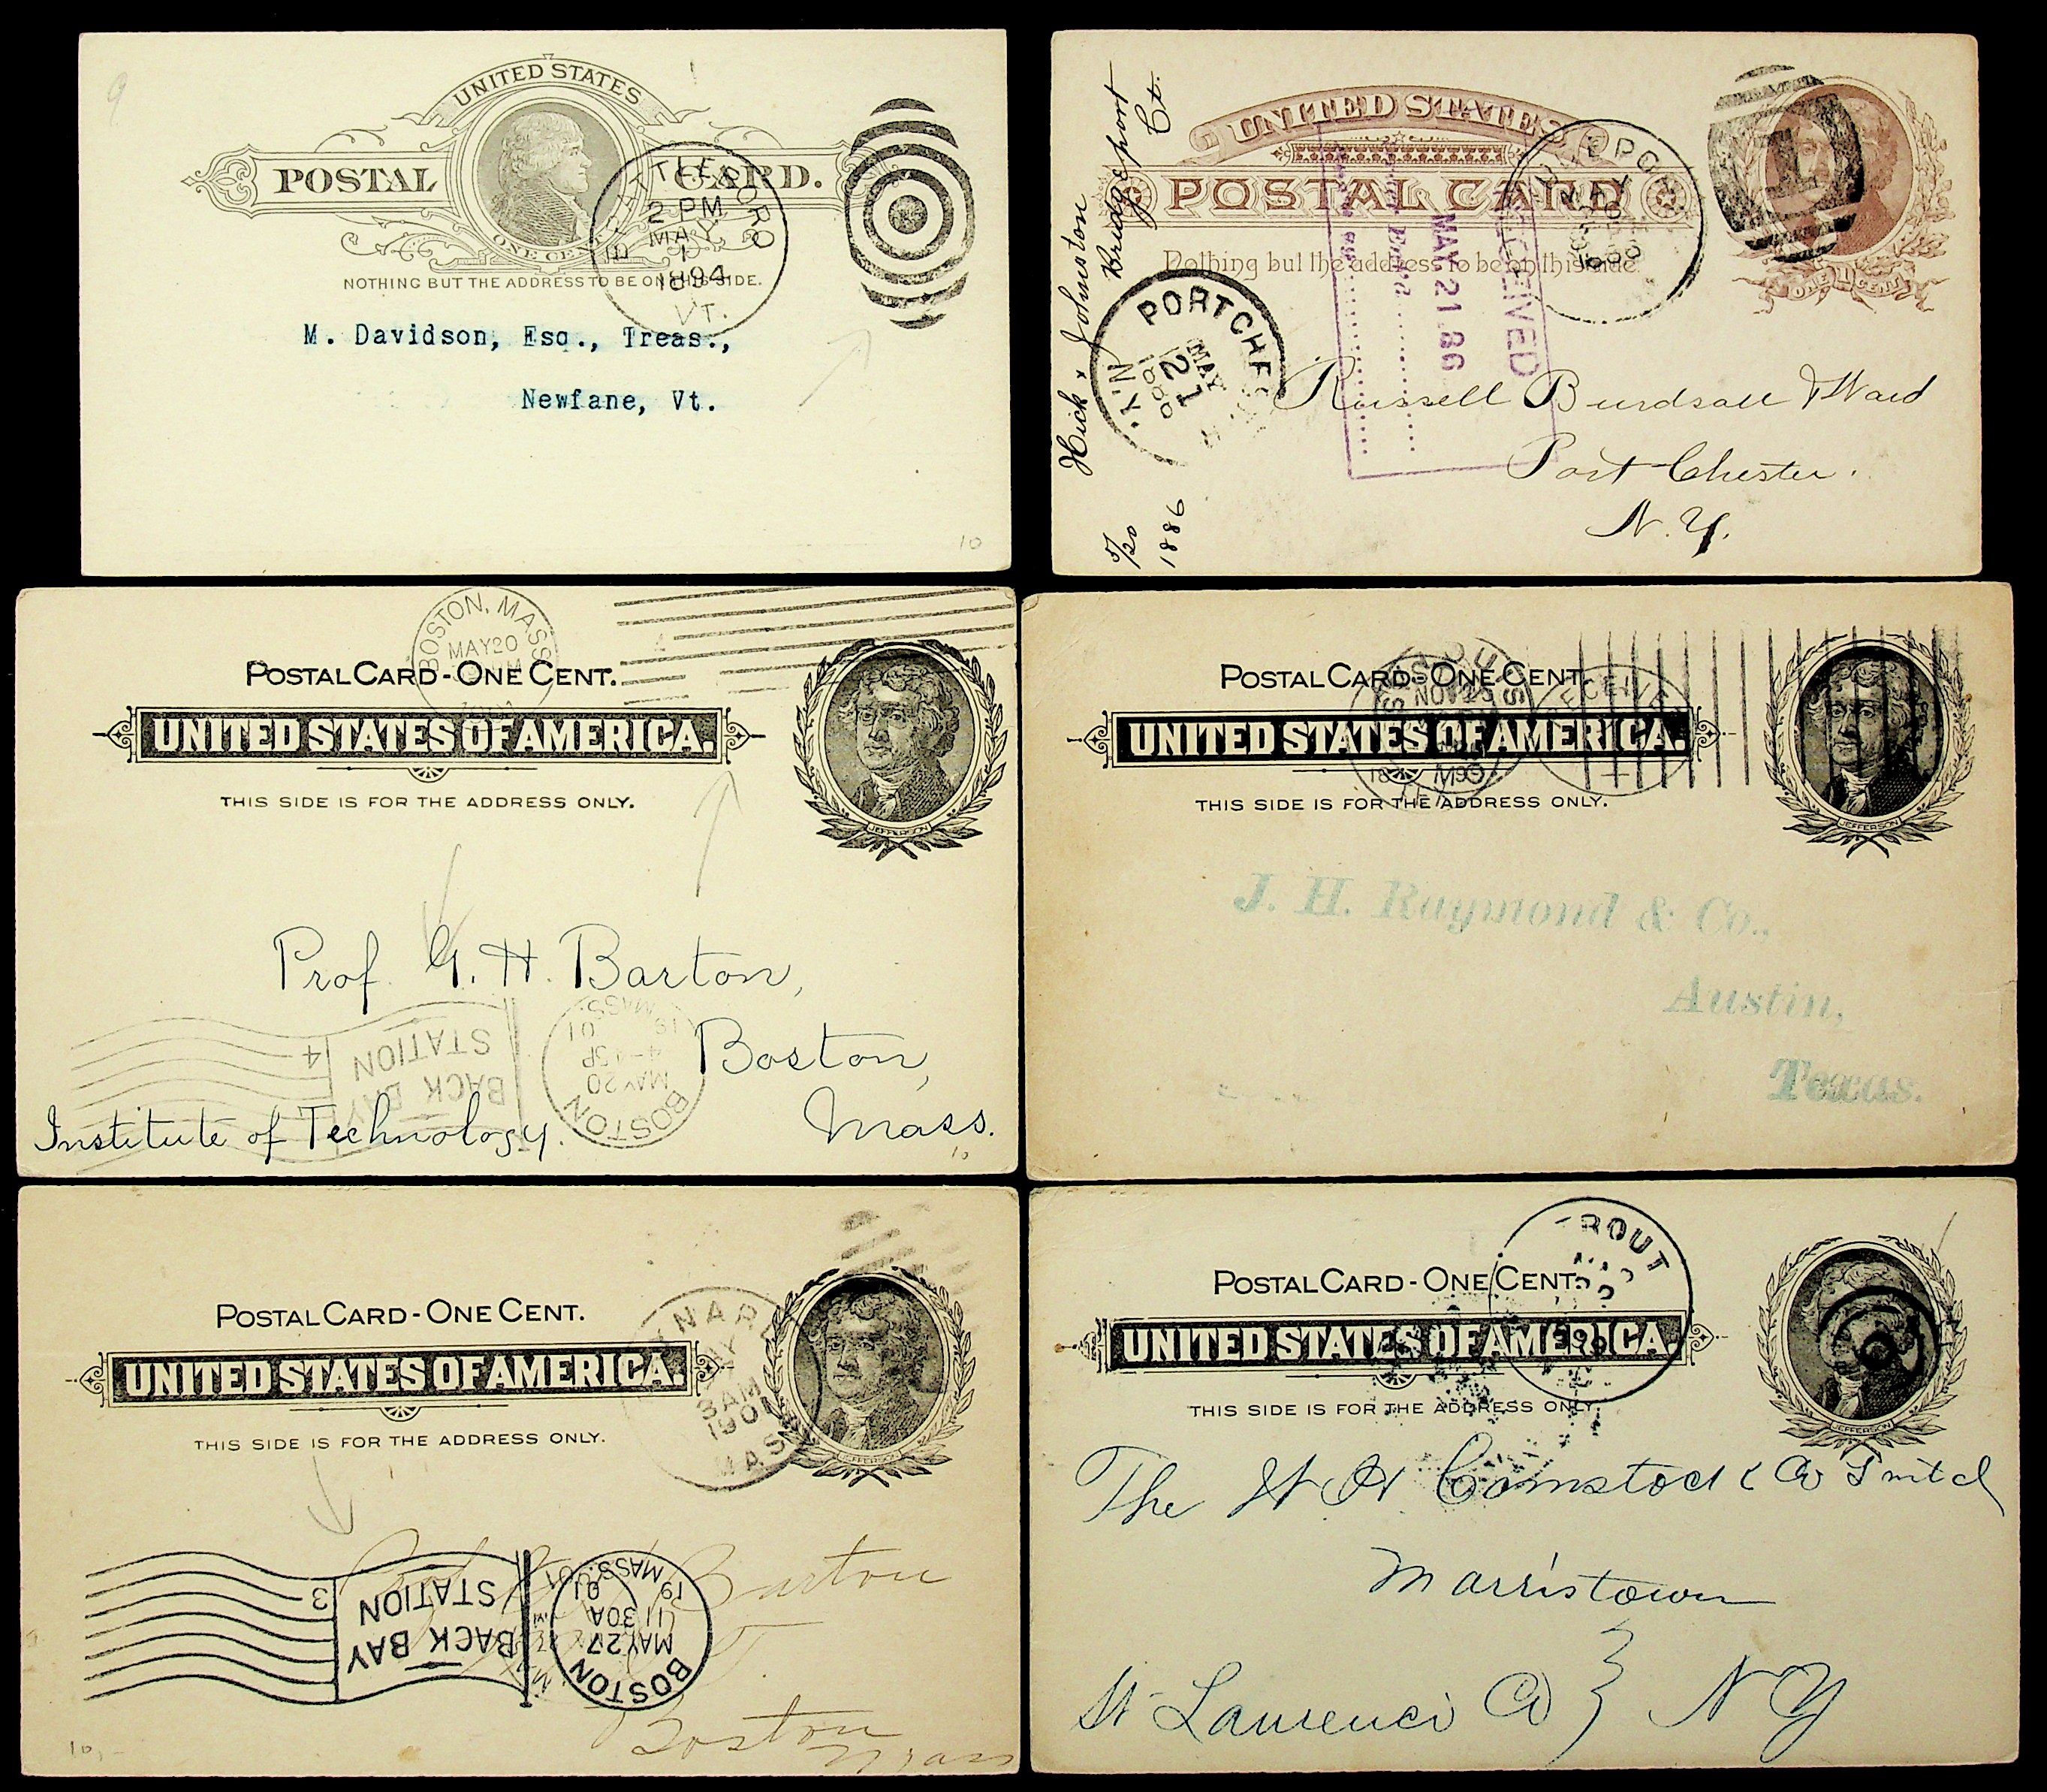 9
UNITED STATES
POSTAL CARD.
ONE CENT
NOTHING BUT THE ADDRESS TO BE ON THIS SIDE.
BRATTLEBORO
2 PM
MAY
1
1894
VT.
M. Davidson, Esq., Treas.,
Newfane, Vt.
10
UNITED STATES
POSTAL CARD
Nothing but the address to be on this side.
ONE 1 CENT
1
MAY
Hick & Johnston
Bridgeport
Ct.
5/20
1886
PORTCHES
MAY
21
N.Y.
RECEIVED
MAY 21 86
Russell Burdsall & Ward
Port Chester.
N. Y.
BOSTON, MASS
MAY 20
POSTAL CARD - ONE CENT.
UNITED STATES OF AMERICA.
THIS SIDE IS FOR THE ADDRESS ONLY.
JEFFERSON
Prof. G. H. Barton,
Boston,
Mass.
Institute of Technology.
BACK BAY
STATION
4
BOSTON
MAY 20
4-45P
19 01
MASS.
10
POSTAL CARD - ONE CENT.
UNITED STATES OF AMERICA.
THIS SIDE IS FOR THE ADDRESS ONLY.
JEFFERSON
NOV 25
RECEIVED
J. H. Raymond & Co.,
Austin,
Texas.
POSTAL CARD - ONE CENT.
UNITED STATES OF AMERICA.
THIS SIDE IS FOR THE ADDRESS ONLY.
JEFFERSON
YNARD
8 AM
1901
MASS
BACK BAY
STATION
3
BOSTON
MAY 27
11 30A
19 01
MASS.
Barton
Boston
Mass
10,-
POSTAL CARD - ONE CENT.
UNITED STATES OF AMERICA.
THIS SIDE IS FOR THE ADDRESS ONLY.
JEFFERSON
ROUT
The W H Comstock & Co
Morristown
St Lawrence Co } N Y